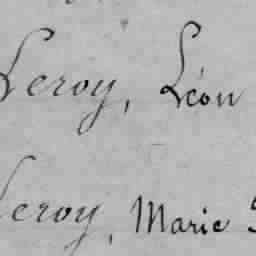 Leroy, Léon
Leroy, Marie